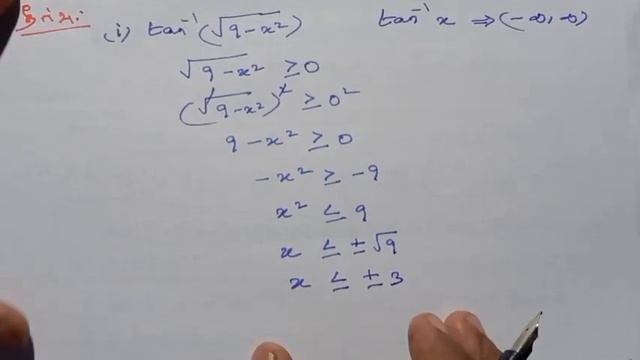 தீர்வு:
(i) tan⁻¹(√9-x²) tan⁻¹x ⇒ (-∞, ∞)
√9-x² ≥ 0
(√9-x²)² ≥ 0²
9-x² ≥ 0
-x² ≥ -9
x² ≤ 9
x ≤ ±√9
x ≤ ±3